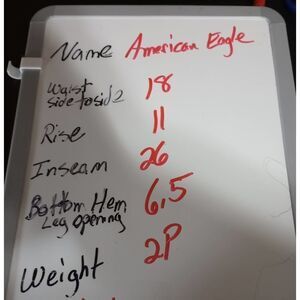 Name American Eagle
Waist 18
side to side
Rise 11
Inseam 26
Bottom Hem 6.5
Leg opening
Weight 2P